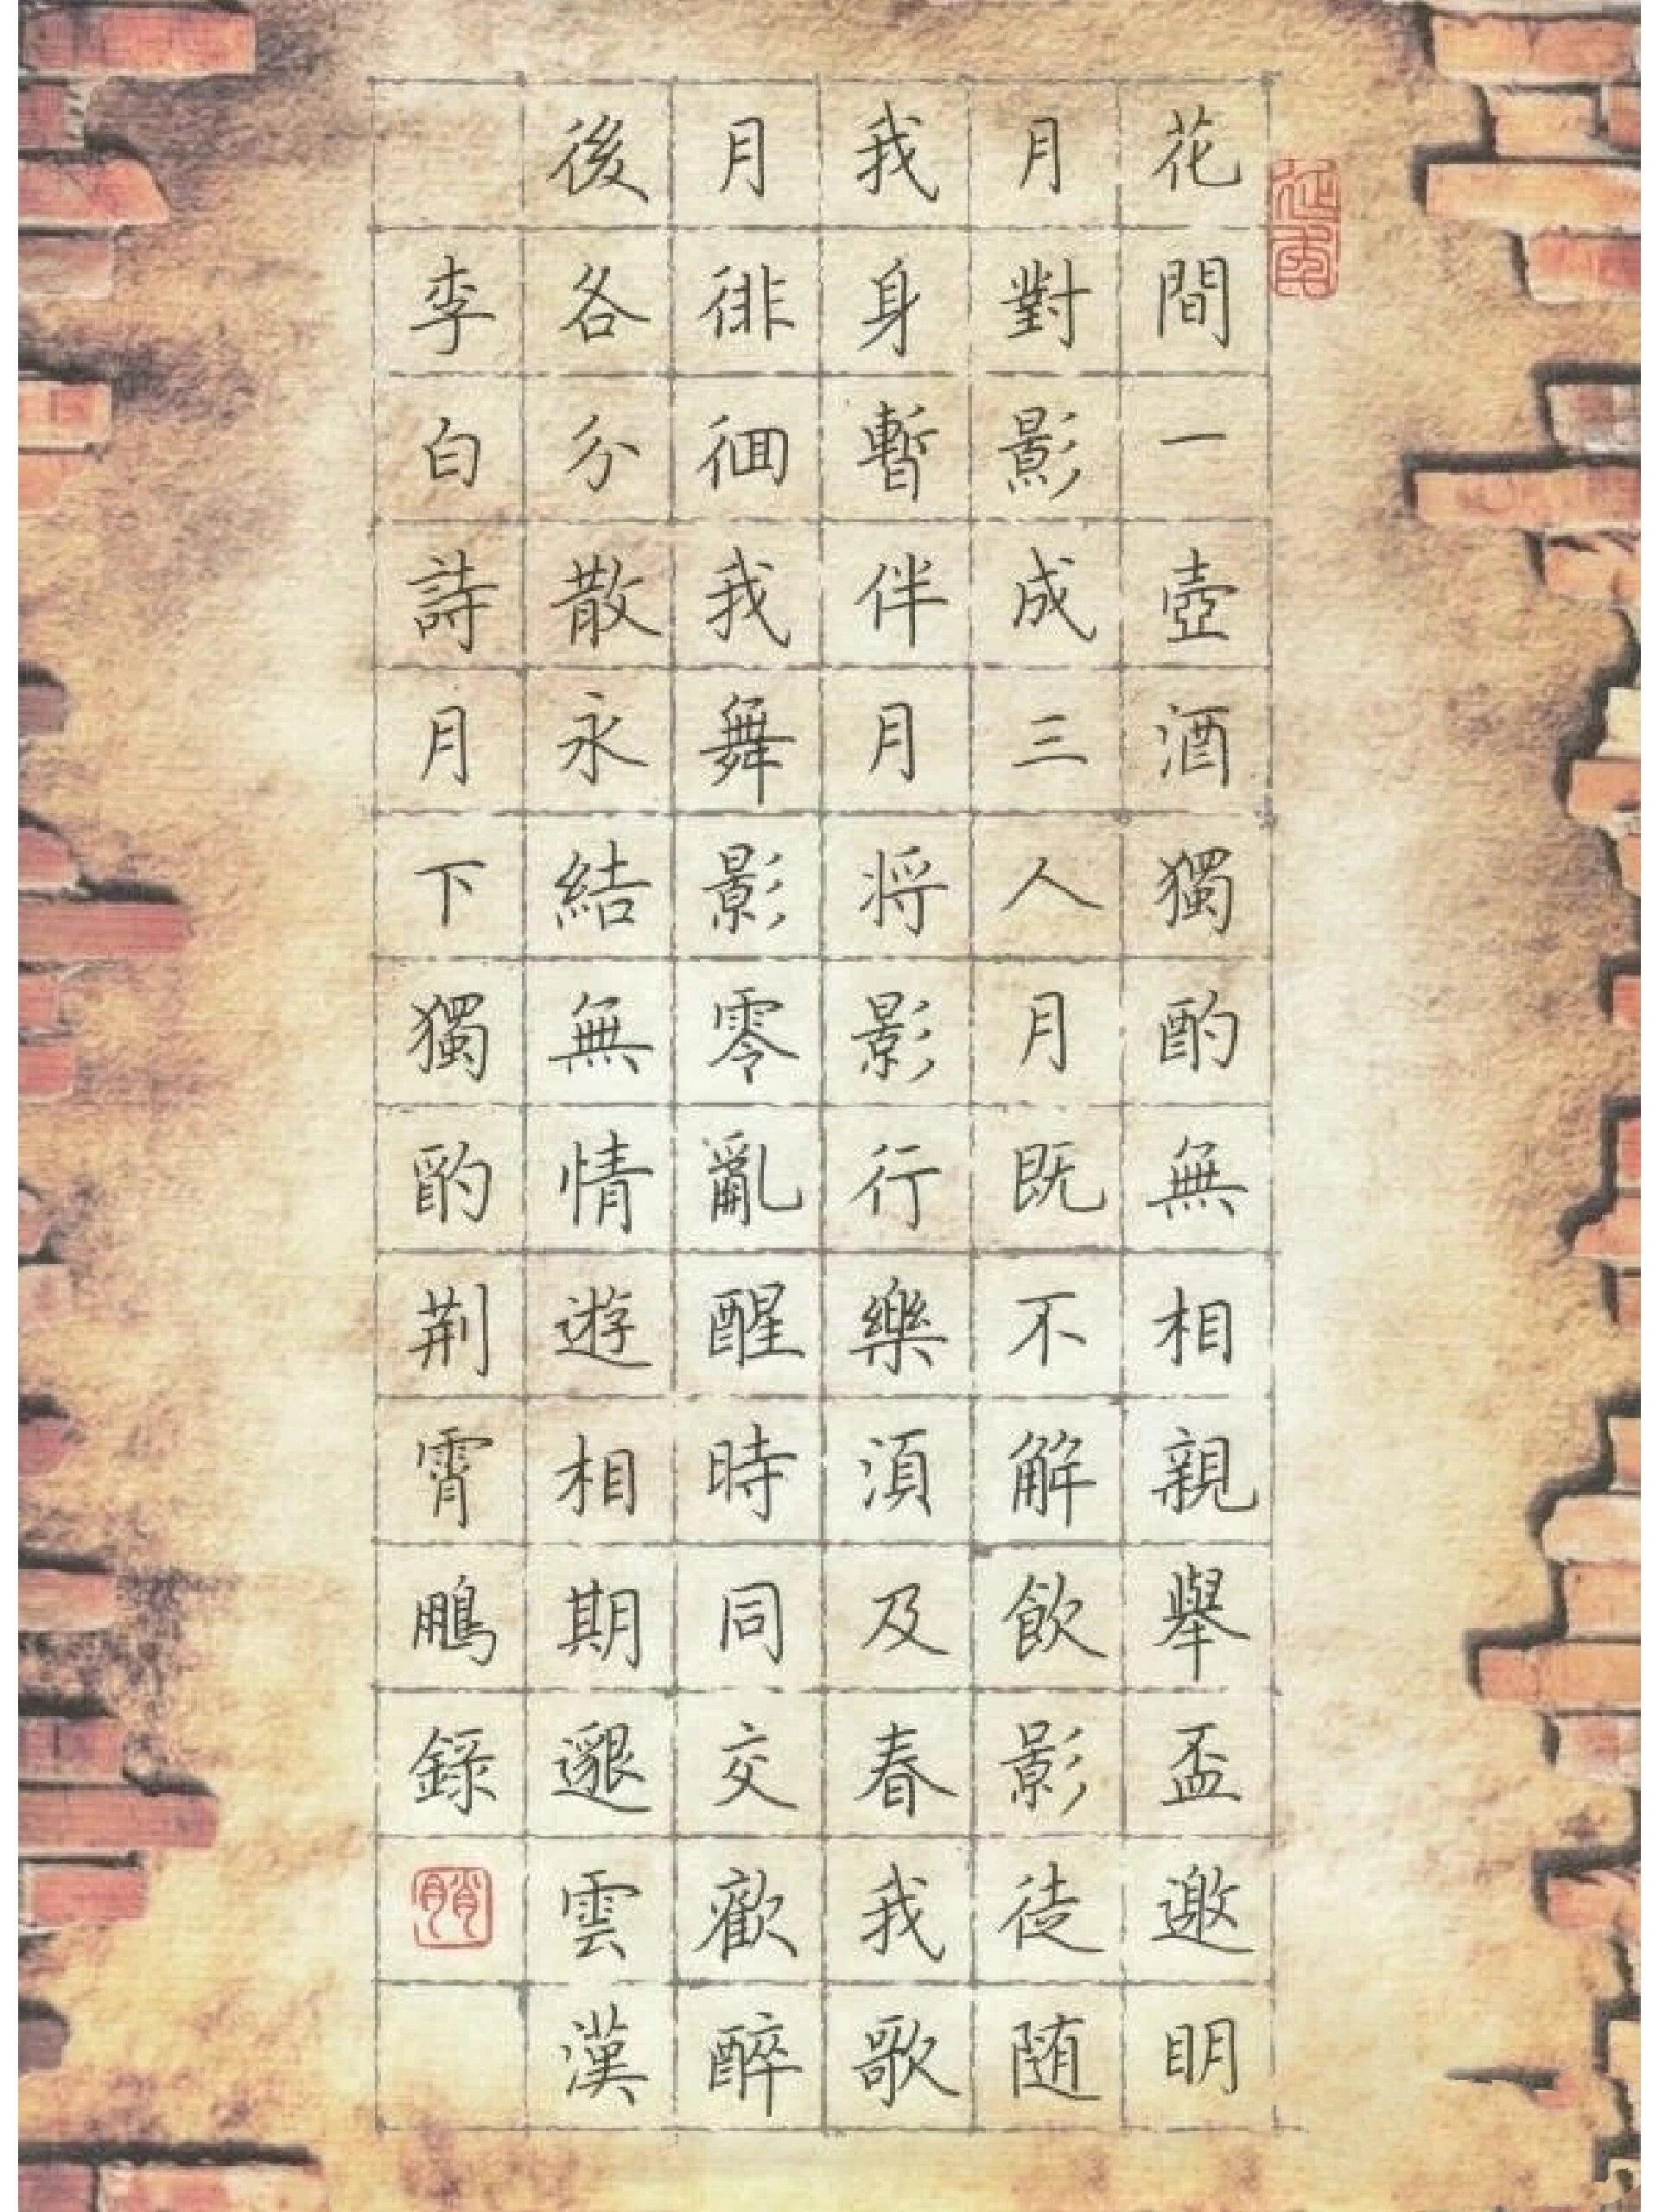 花間一壺酒獨酌無相親舉盃邀明
月對影成三人月既不解飲影徒随
我身暫伴月将影行樂須及春我歌
月徘徊我舞影零亂醒時同交歡醉
後各分散永結無情遊相期邈雲漢
李白詩月下獨酌荆霄鵬錄